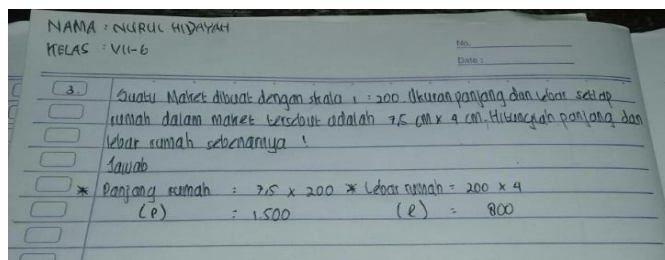 NAMA : NURUL HIDAYAH
KELAS : VII-6
No.
Date :
3. Suatu Maket dibuat dengan skala 1 : 200. Ukuran panjang dan lebar setiap
rumah dalam maket tersebut adalah 7,5 cm x 4 cm. Hitunglah panjang dan
lebar rumah sebenarnya !
Jawab
* Panjang rumah : 7,5 x 200 * Lebar rumah = 200 x 4
(P) : 1.500 (l) = 800